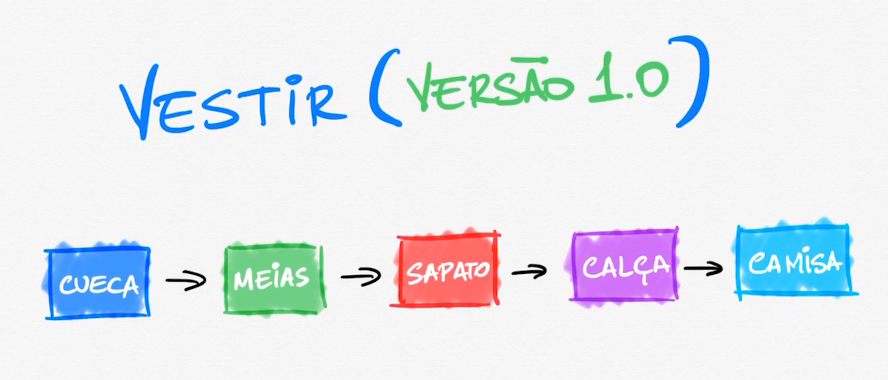 VESTIR (VERSÃO 1.0)
CUECA → MEIAS → SAPATO → CALÇA → CAMISA